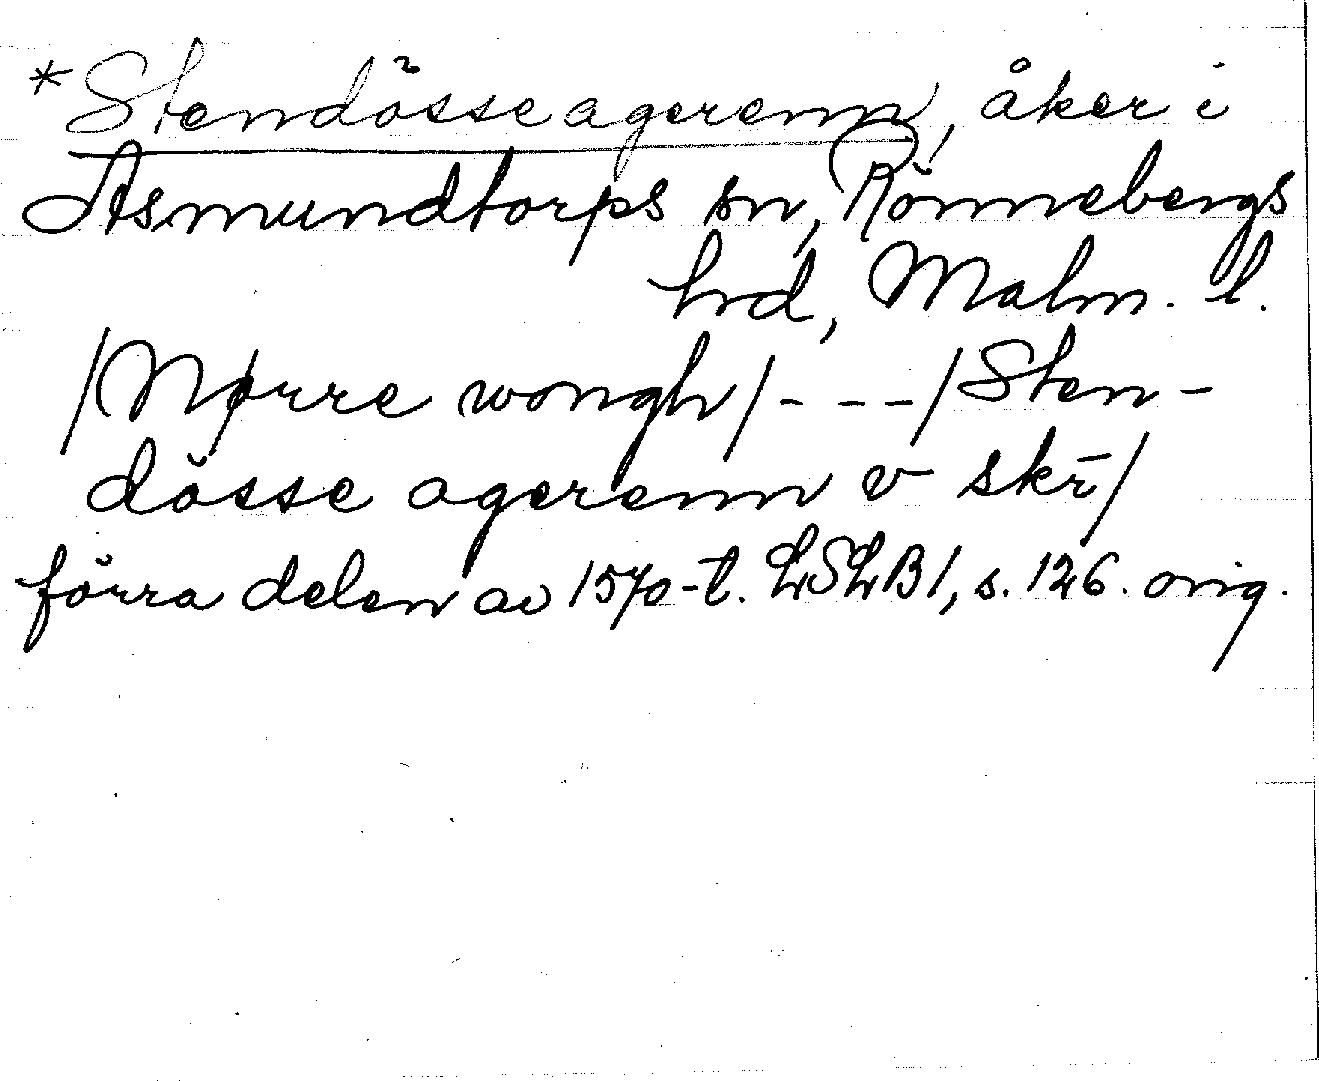 *Stendösseagerenn, åker i
Asmundtorps sn, Rönnebergs
hrd, Malm. l.
/Nørre wongh/---/Sten-
dösse agerenn v skr̄/
förra delen av 1570-t. LSLB1, s. 126. orig.